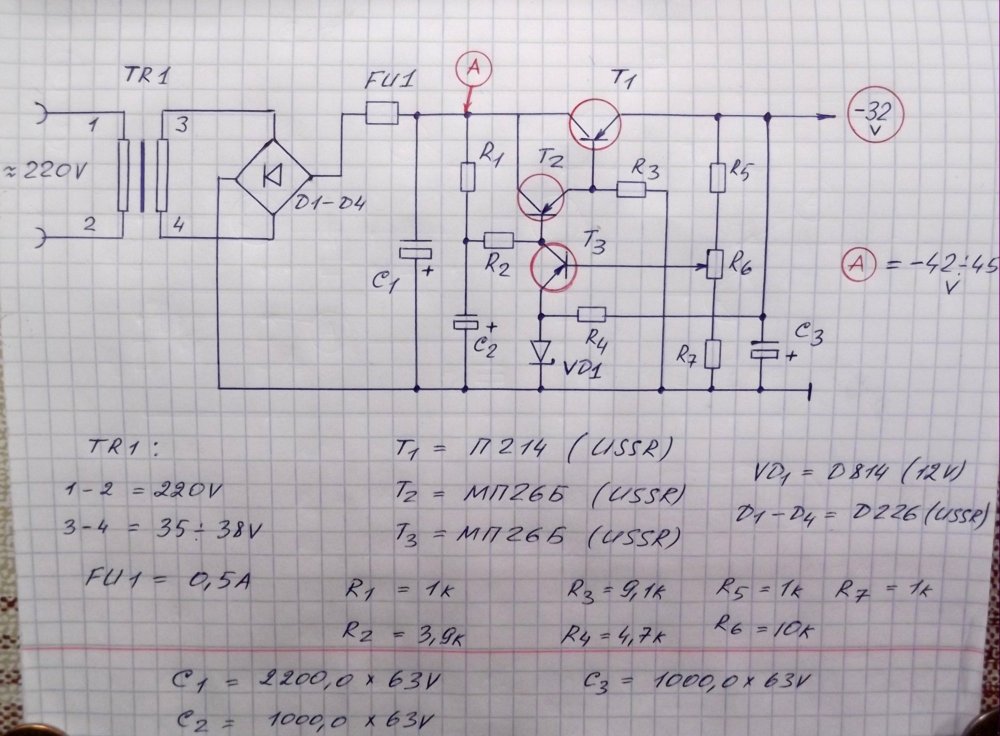 TR1
FU1
A
T1
-32
V
1
3
≈ 220V
R1
T2
R3
R5
D1-D4
2
4
T3
R2
R6
A = -42÷45
V
C1
+
+
C2
R4
VD1
R7
C3
+
TR1 :
1-2 = 220V
3-4 = 35÷38V
FU1 = 0,5A
T1 = П214 (USSR)
T2 = МП26Б (USSR)
T3 = МП26Б (USSR)
VD1 = D814 (12V)
D1-D4 = D226 (USSR)
R1 = 1k
R3 = 9,1k
R5 = 1k
R7 = 1k
R2 = 3,9k
R4 = 4,7k
R6 = 10k
C1 = 2200,0 x 63V
C3 = 1000,0 x 63V
C2 = 1000,0 x 63V